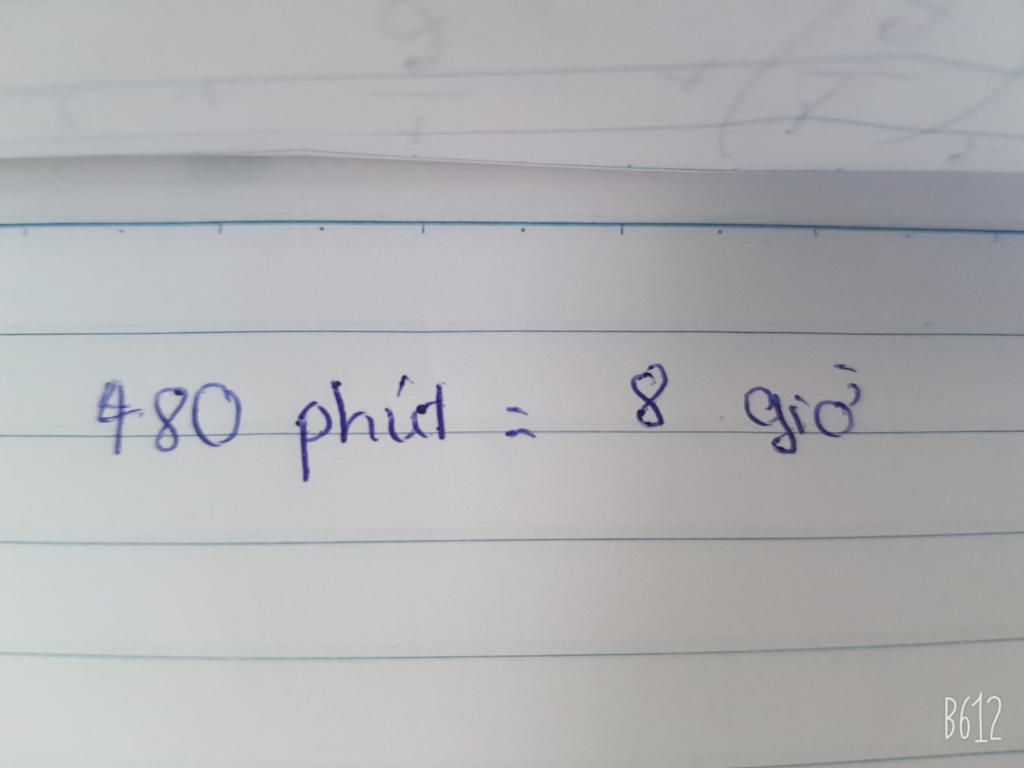 480 phút = 8 giờ
B612